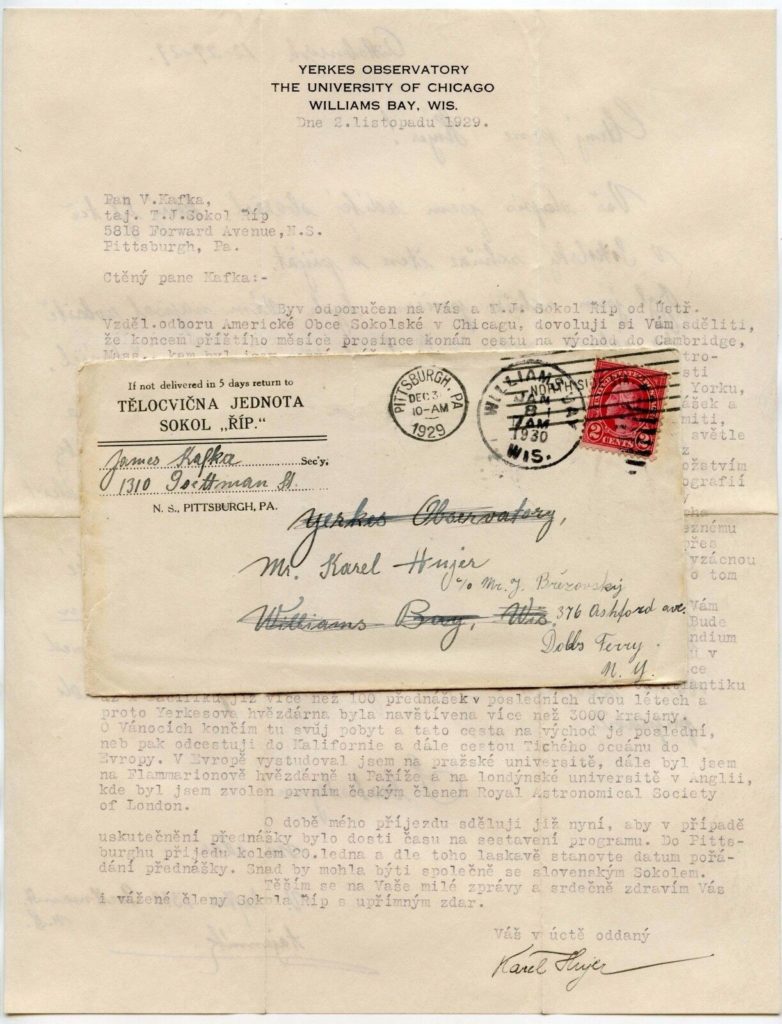 YERKES OBSERVATORY
THE UNIVERSITY OF CHICAGO
WILLIAMS BAY, WIS.
Dne 2.listopadu 1929.
Pan V.Kafka,
taj. T.J.Sokol Říp
5818 Forward Avenue,N.S.
Pittsburgh, Pa.
Ctěný pane Kafka:-
Byv odporučen na Vás a T.J. Sokol Říp od ústř.
Vzděl.odboru Americké Obce Sokolské v Chicagu, dovoluji si Vám sděliti,
že koncem příštího měsíce prosince konám cestu na východ do Cambridge,
Mass., kam byl jsem
tro-
sti
Yorku,
ášek a
míti,
světle
z
ožstvím
ografií
v
cha
eznému
přes
vzácnou
o tom
Vám
Bude
ndium
í v
ce
tlantiku
If not delivered in 5 days return to
TĚLOCVIČNA JEDNOTA
SOKOL „ŘÍP."
James Kafka Sec'y.
1310 Goettman St.
N. S., PITTSBURGH, PA.
PITTSBURGH, PA
DEC 3
10-AM
1929
NORTH SIDE
WILLIAMS BAY
JAN
8
7 AM
1930
WIS.
2 CENTS 2
Yerkes Observatory,
Mr. Karel Hujer
c/o Mr. J. Březovský
Williams Bay, Wis. 376 Ashford ave.
Dobbs Ferry.
N. Y.
až k Pacifiku, již více než 100 přednášek v posledních dvou létech a
proto Yerkesova hvězdárna byla navštívena více než 3000 krajany.
O Vánocích končím tu svůj pobyt a tato cesta na východ je poslední,
neb pak odcestuji do Kalifornie a dále cestou Tichého oceánu do
Evropy. V Evropě vystudoval jsem na pražské universitě, dále byl jsem
na Flammarionově hvězdárně u Paříže a na londýnské universitě v Anglii,
kde byl jsem zvolen prvním českým členem Royal Astronomical Society
of London.
O době mého příjezdu sděluji již nyní, aby v případě
uskutečnění přednášky bylo dosti času na sestavení programu. Do Pitts-
burghu přijedu kolem 20.ledna a dle toho laskavě stanovte datum pořá-
dání přednášky. Snad by mohla býti společně se slovenským Sokolem.
Těším se na Vaše milé zprávy a srdečně zdravím Vás
i vážené členy Sokola Říp s upřímným zdar.
Váš v úctě oddaný
Karel Hujer